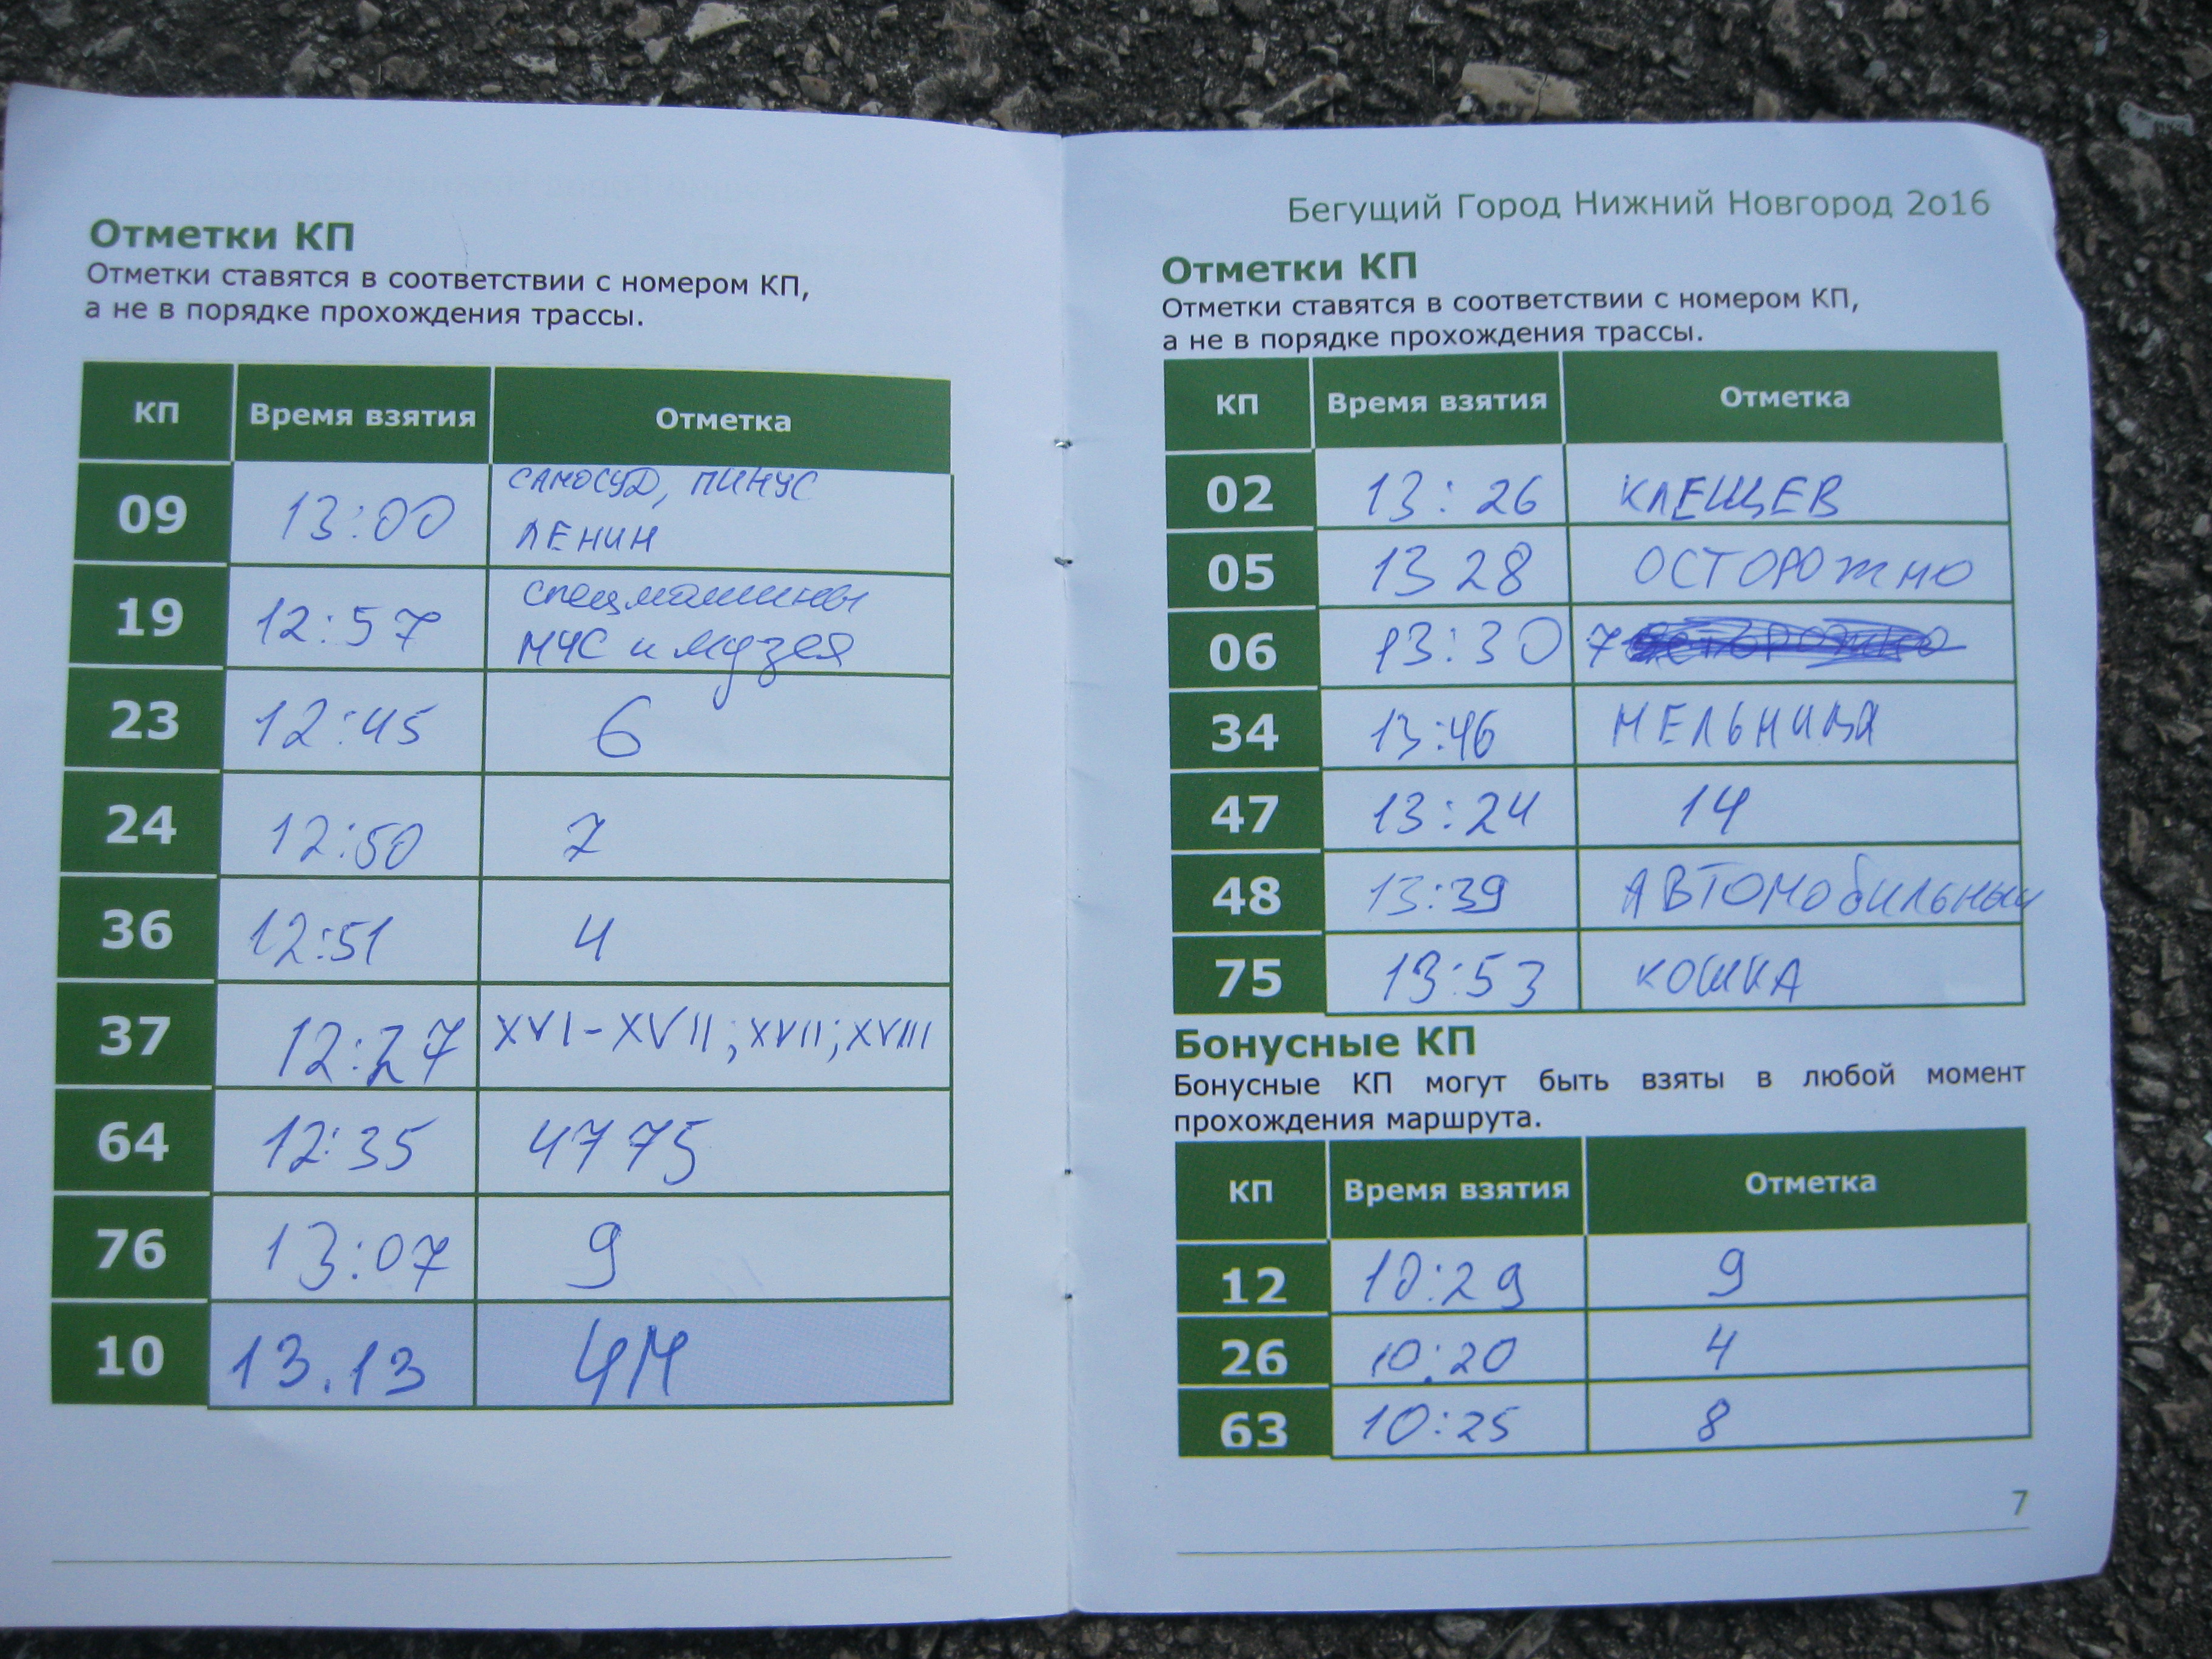 Отметки КП
Отметки ставятся в соответствии с номером КП,
а не в порядке прохождения трассы.
КП Время взятия Отметка
09 13:00 САМОСУД, ПИНУС
ЛЕНИН
19 12:57 спецмашины
МЧС и музея
23 12:45 6
24 12:50 7
36 12:51 4
37 12:27 XVI-XVII; XVII; XVIII
64 12:35 4775
76 13:07 9
10 13.13 ЧМ
Бегущий Город Нижний Новгород 2о16
Отметки КП
Отметки ставятся в соответствии с номером КП,
а не в порядке прохождения трассы.
КП Время взятия Отметка
02 13:26 КЛЕЩЕВ
05 13 28 ОСТОРОЖНО
06 13:30 7
34 13:46 МЕЛЬНИЦА
47 13:24 14
48 13:39 АВТОМобильный
75 13:53 КОШКА
Бонусные КП
Бонусные КП могут быть взяты в любой момент
прохождения маршрута.
КП Время взятия Отметка
12 10:29 9
26 10:20 4
63 10:25 8
7